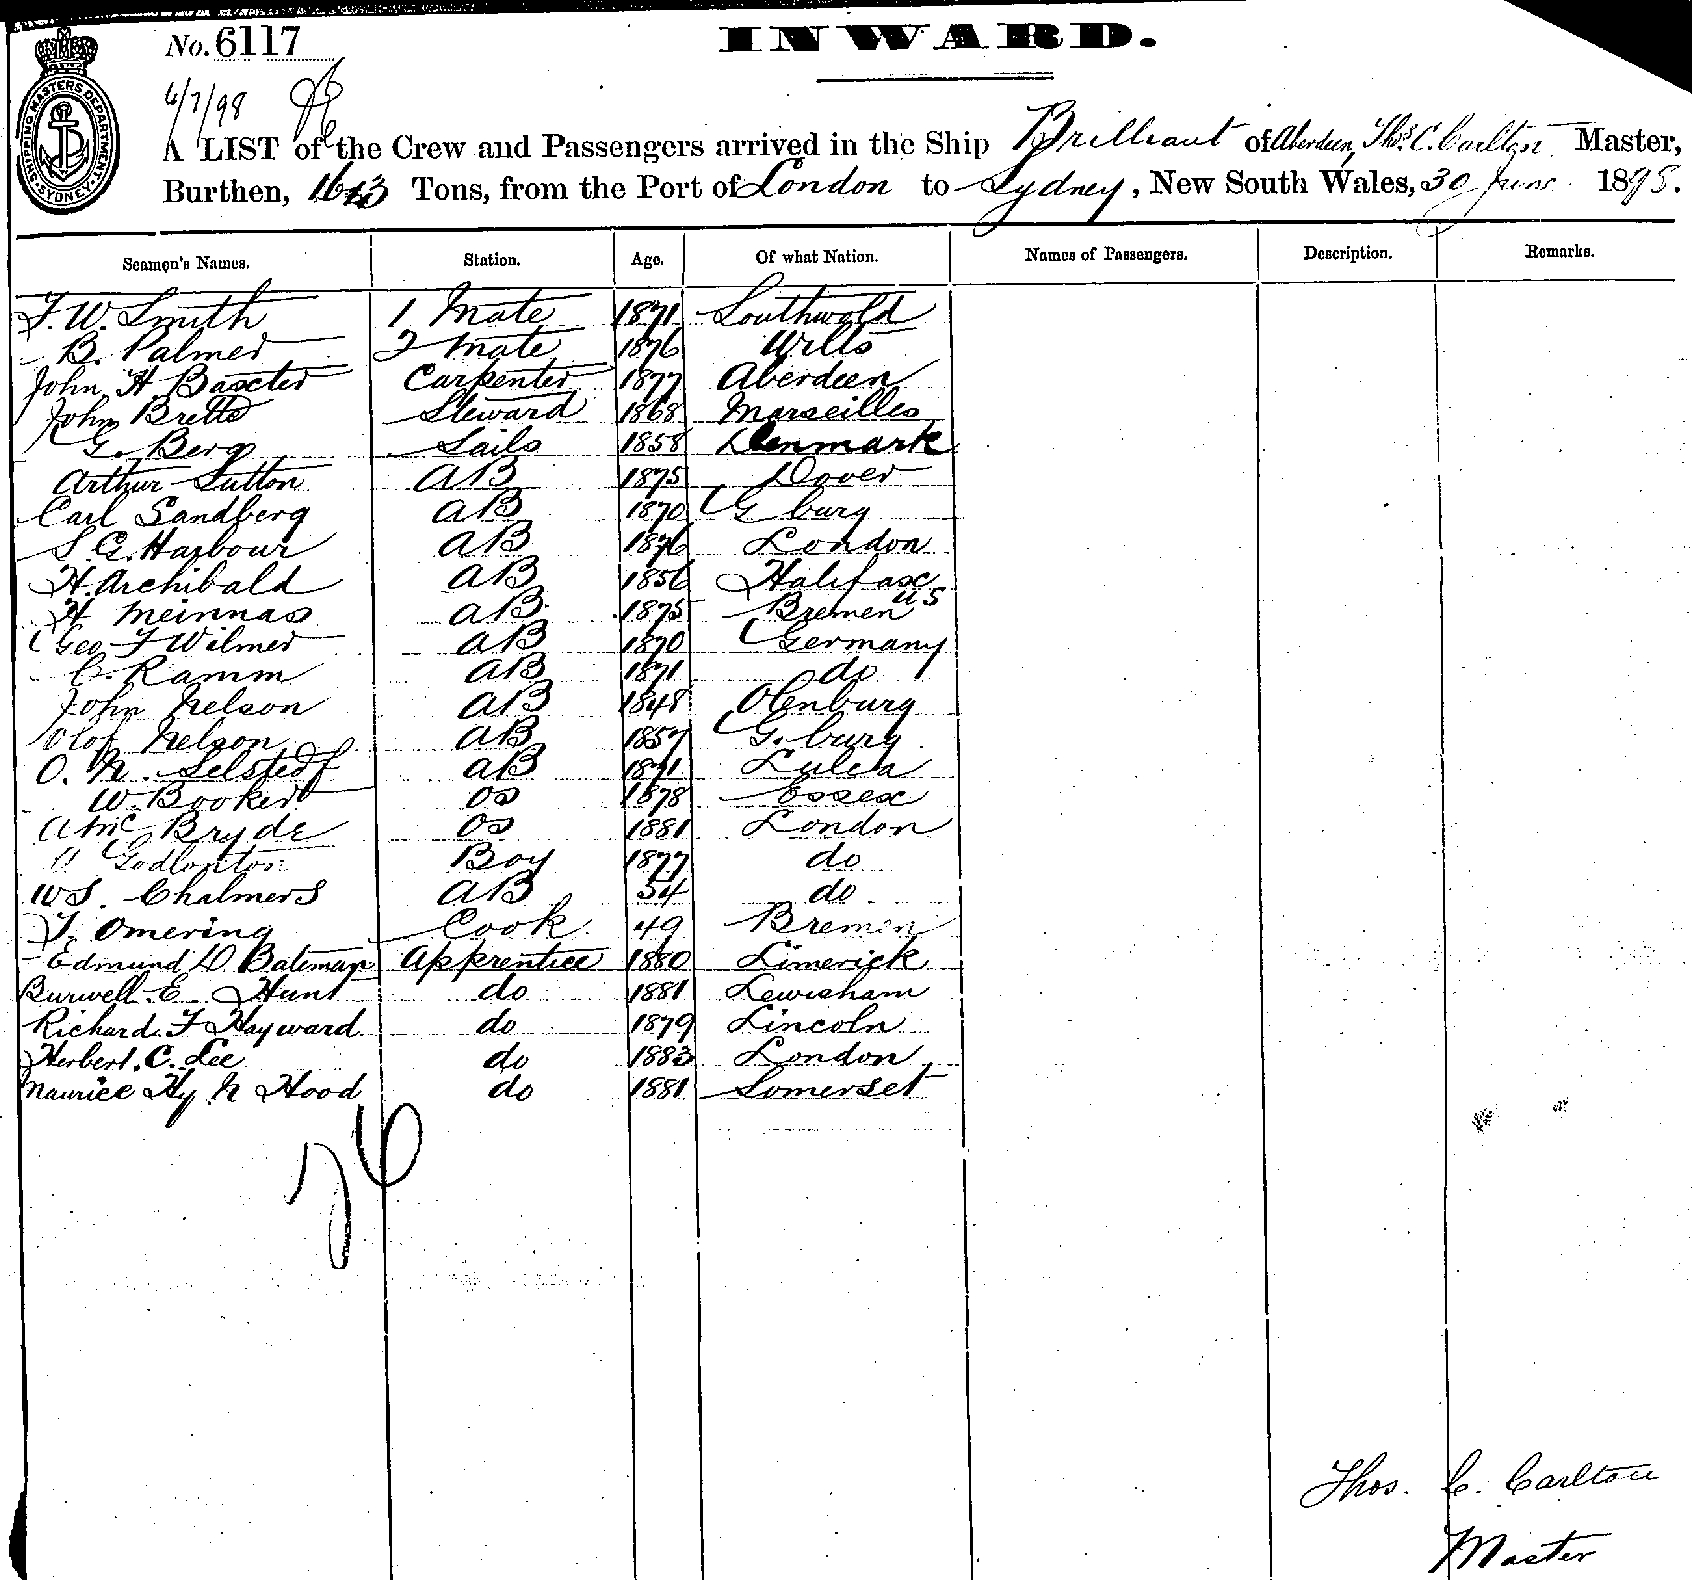 No. 6117
INWARD.
SHIPPING MASTERS DEPARTMENT SYDNEY
6/7/98
A LIST of the Crew and Passengers arrived in the Ship Brilliant of Aberdeen, Thos. C. Carlton Master,
Burthen, 1613 Tons, from the Port of London to Sydney, New South Wales, 30 June 1898.
Seamen's Names. Station. Age. Of what Nation. Names of Passengers. Description. Remarks.
F. W. Smith 1 Mate 1871 Southwold
B. Palmer 2 Mate 1876 Wilts
John H Baxter Carpenter 1877 Aberdeen
John Bretts Steward 1868 Marseilles
G. Berg Sails 1858 Denmark
Arthur Sutton AB 1875 Dover
Carl Sandberg AB 1870 G burg
S G. Harbour AB 1876 London
H. Archibald AB 1856 Halifax
H Meinnas AB 1875 Bremen US
Geo F Wilmer AB 1870 Germany
C. Ramm AB 1871 do
John Nelson AB 1848 Olenburg
Olof Nelson AB 1857 G. burg
O. N. Selstedt AB 1871 Lulea
W. Booker OS 1878 Essex
A Mc Bryde OS 1881 London
Godlonton Boy 1877 do
W S. Chalmers AB 54 do
F. Omering Cook 49 Bremen
Edmund D Bateman Apprentice 1880 Limerick
Burwell. E. Hunt do 1881 Lewisham
Richard. F Hayward do 1879 Lincoln
Herbert. C. Lee do 1883 London
Maurice Hy N Hood do 1881 Somerset
26
Thos. C. Carlton
Master